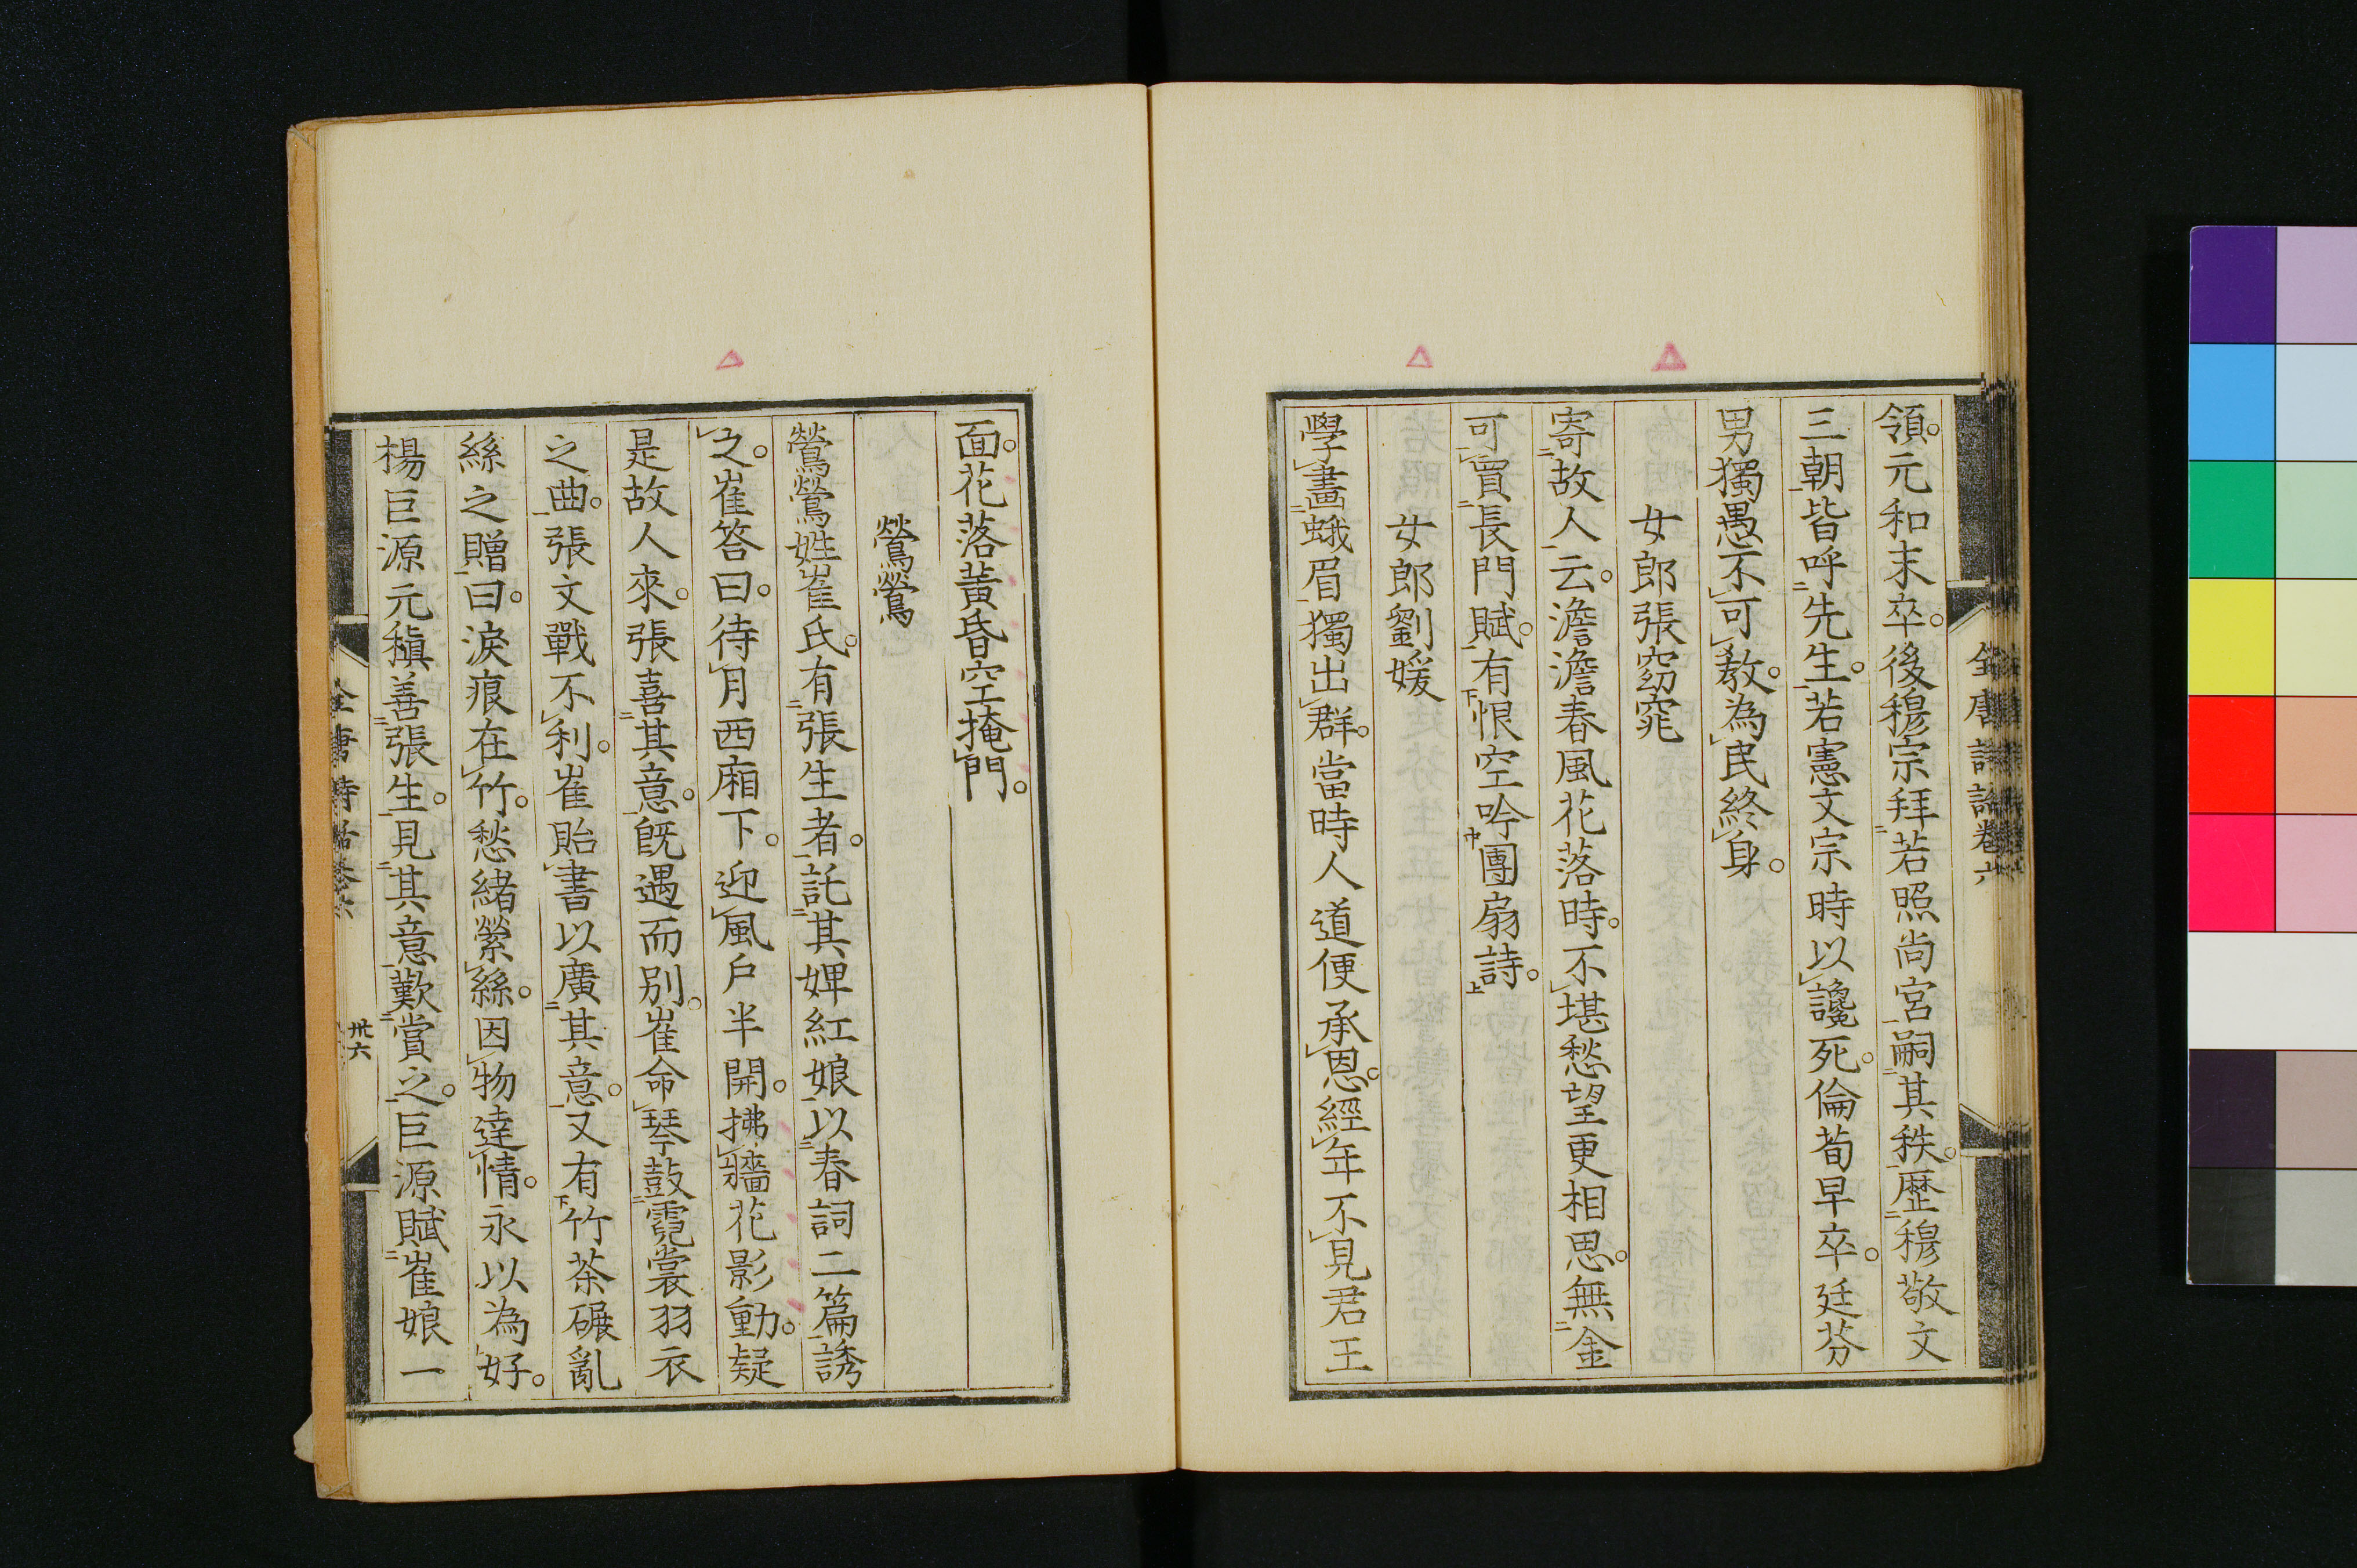 全唐詩話卷六
領。元和末卒。後穆宗拜若照尚宮嗣其秩。歷穆敬文
三朝皆呼先生。若憲文宗時以讒死。倫荀早卒。廷芬
男獨愚不可敎。為民終身。
女郎張窈窕
寄故人云。澹澹春風花落時。不堪愁望更相思。無金
可買長門賦。有恨空吟團扇詩。
女郎劉媛
學畫蛾眉獨出群。當時人道便承恩。經年不見君王
面。花落黃昏空掩門。
鶯鶯
鶯鶯姓崔氏。有張生者。託其婢紅娘以春詞二篇誘
之。崔答曰。待月西廂下。迎風戶半開。拂牆花影動。疑
是故人來。張喜其意。旣遇而别。崔命琴鼓霓裳羽衣
之曲。張文戰不利。崔貽書以廣其意。又有竹茶碾亂
絲之贈曰。淚痕在竹。愁緒縈絲。因物達情。永以為好。
楊巨源元稹善張生。見其意歎賞之。巨源賦崔娘一
全唐詩話卷六
卅六